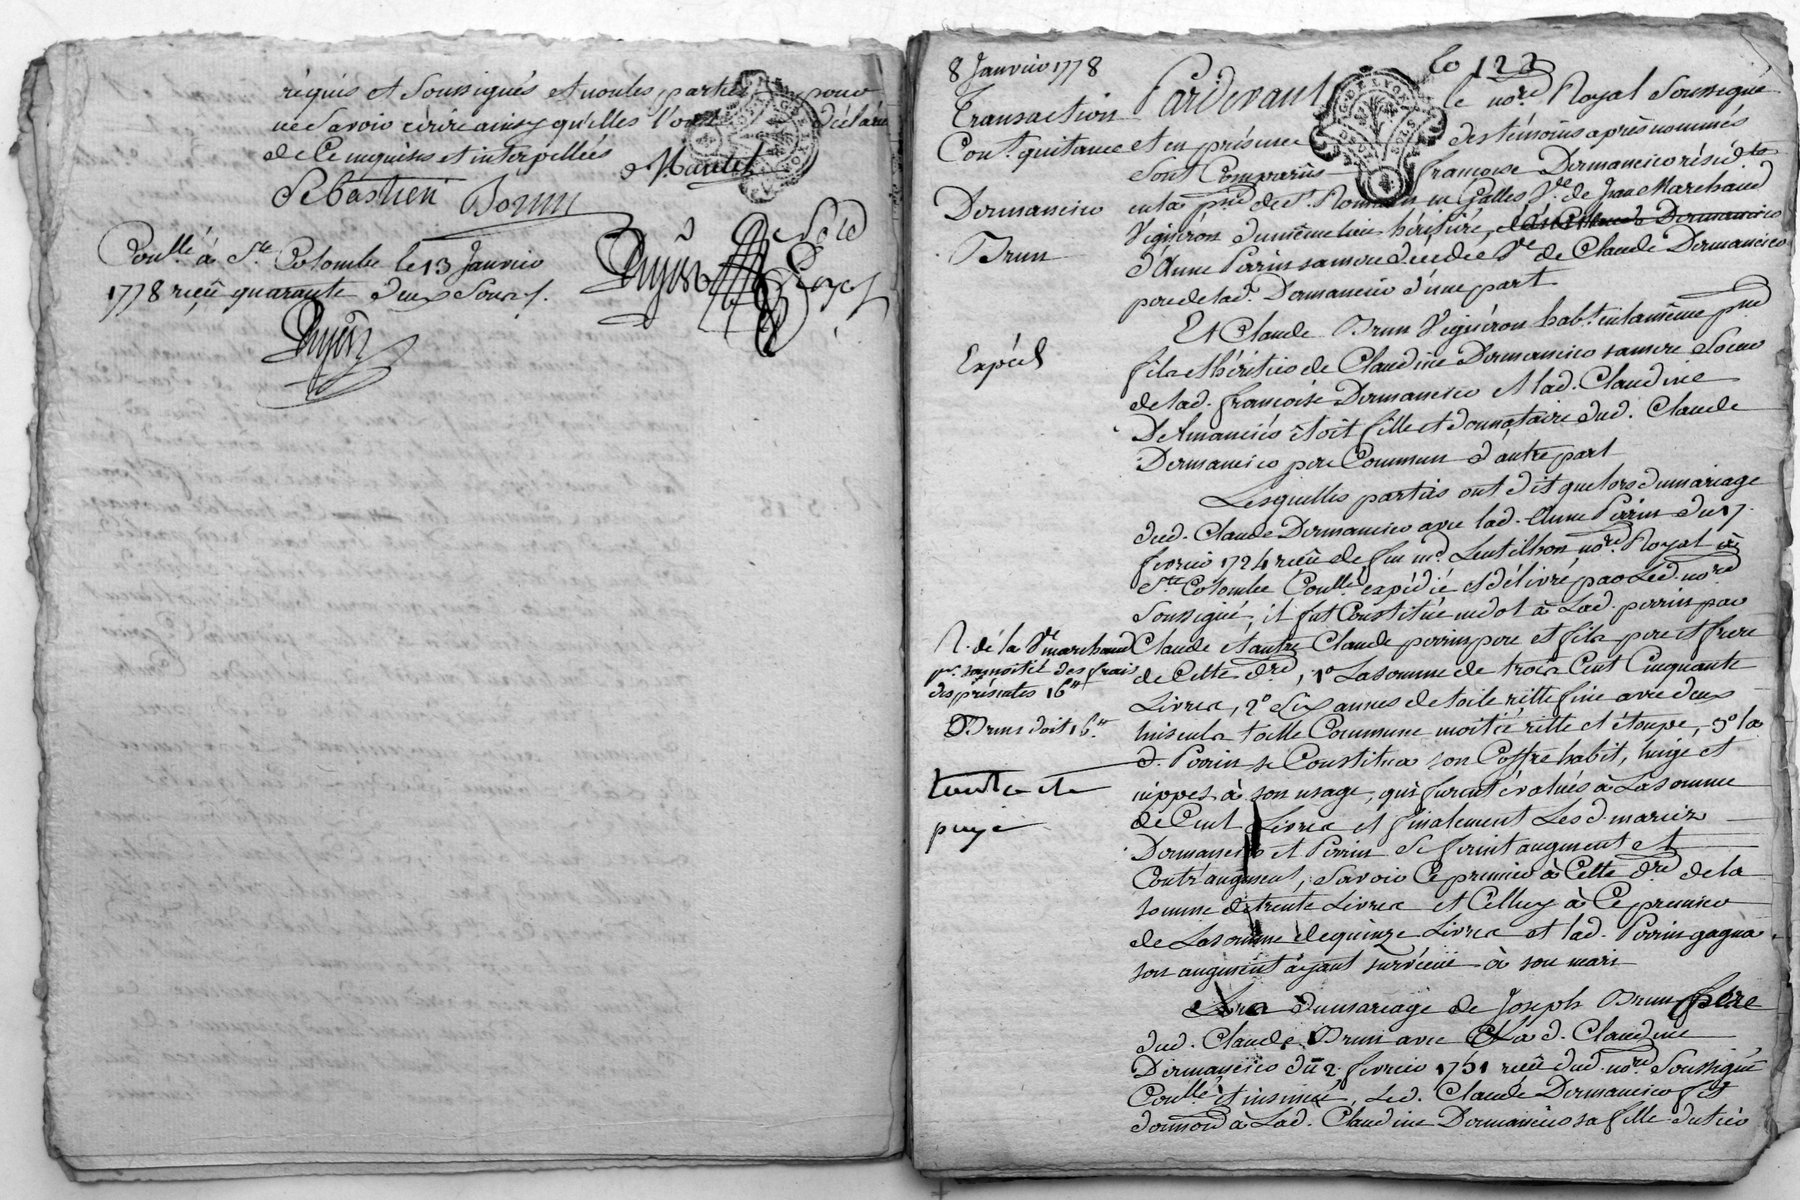 réquis et Soussignés et non les parties pour
ne Savoir écrire ainsy qu'elles l'ont déclaré
de Ce enquises et interpellées
Sébastien Bonin
Coullé à Ste Colombe le 13 Janvier
1778 reçu quarante deux Sous
8 Janvier 1778
Transaction
Cont. quitance
Dermancier
Brun
Expéd
R. de la Ve marchand
pr. sa moitié des frais
des présentes 16 tt
Brun doit 16 tt
payé
122
Pardevant le nore Royal Soussigné
et en présence des témoins après nommés
Sont Comparus françoise Dermancier résidte
en la psse de St. Romain en Galles Ve. de Jean Marchand
Vigneron du même lieu héritière,
d'Anne Perrin sa mere décédée Ve de Claude Dermancier
pere de lad. Dermancier d'une part
Et Claude Brun Vigneron habt. en la même psse
fils et héritier de Claudine Dermancier sa mere Soeur
de lad. françoise Dermancier et lad. Claudine
Dermancier étoit fille et donnataire dud. Claude
Dermancier pere Commun d'autre part
Lesquelles parties ont dit que lors du mariage
dud. Claude Dermancier avec lad. Anne Perrin du 17.
fevrier 1724 reçu de feu me. Lentilhon nore Royal à
Ste Colombe Coullé expédié et délivré par Led. nore
Soussigné, il fut Constitué en dot à Lad. perrin par
Claude et autre Claude perrin pere et fils pere et frere
de Cette dre, 1o La somme de trois Cent Cinquante
Livres, 2o Six aunes de toile ritte fine avec deux
linseuls toille Commune moitié ritte et étoupe, 3o la
d. Perrin se Constitua son Coffre habit, linge et
nippes à son usage, qui furent évalués à La somme
de Cent Livres et finalement Les d. mariez
Dermancier et Perrin se firent augment et
Contr'augment, Savoir Ce premier à Cette dre de la
somme de trente Livres et Celluy à Ce premier
de La somme de quinze Livres et lad. Perrin gagna
son augment ayant survécue à son mari
Lors du mariage de Joseph Brun père
dud. Claude Brun avec La d. Claudine
Dermancier du 2. fevrier 1751 reçu dud. nore Soussigné
Coullé et insinué, Led. Claude Dermancier fit
donnaon à Lad. Claudine Dermancier sa fille du tiers